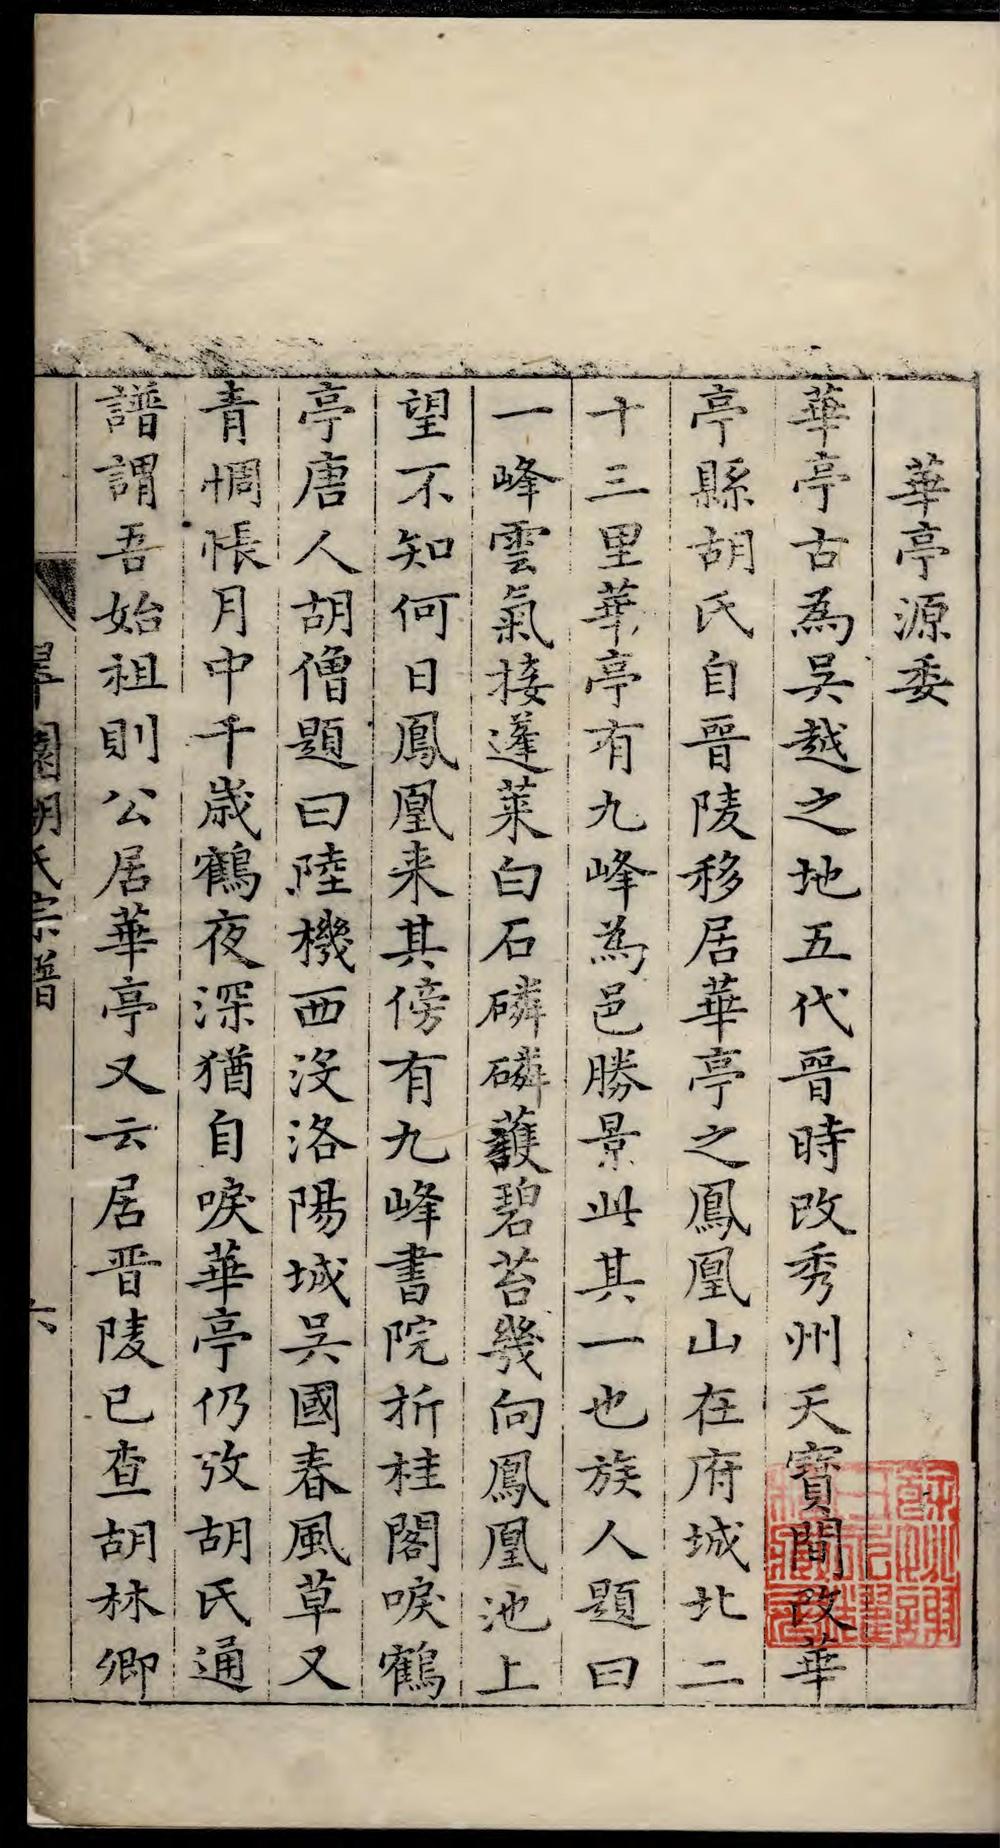 華亭源委
華亭古為吳越之地五代晉時改秀州天寶間改華
亭縣胡氏自晉陵移居華亭之鳳凰山在府城北二
十三里華亭有九峰為邑勝景此其一也族人題曰
一峰雲氣接蓬萊白石磷磷蘀碧苔幾向鳳凰池上
望不知何日鳳凰来其傍有九峰書院折桂閣唳鶴
亭唐人胡僧題曰陸機西沒洛陽城吳國春風草又
青惆悵月中千歲鶴夜深猶自唳華亭仍攷胡氏通
譜謂吾始祖則公居華亭又云居晉陵已查胡林卿
園胡氏宗譜
六